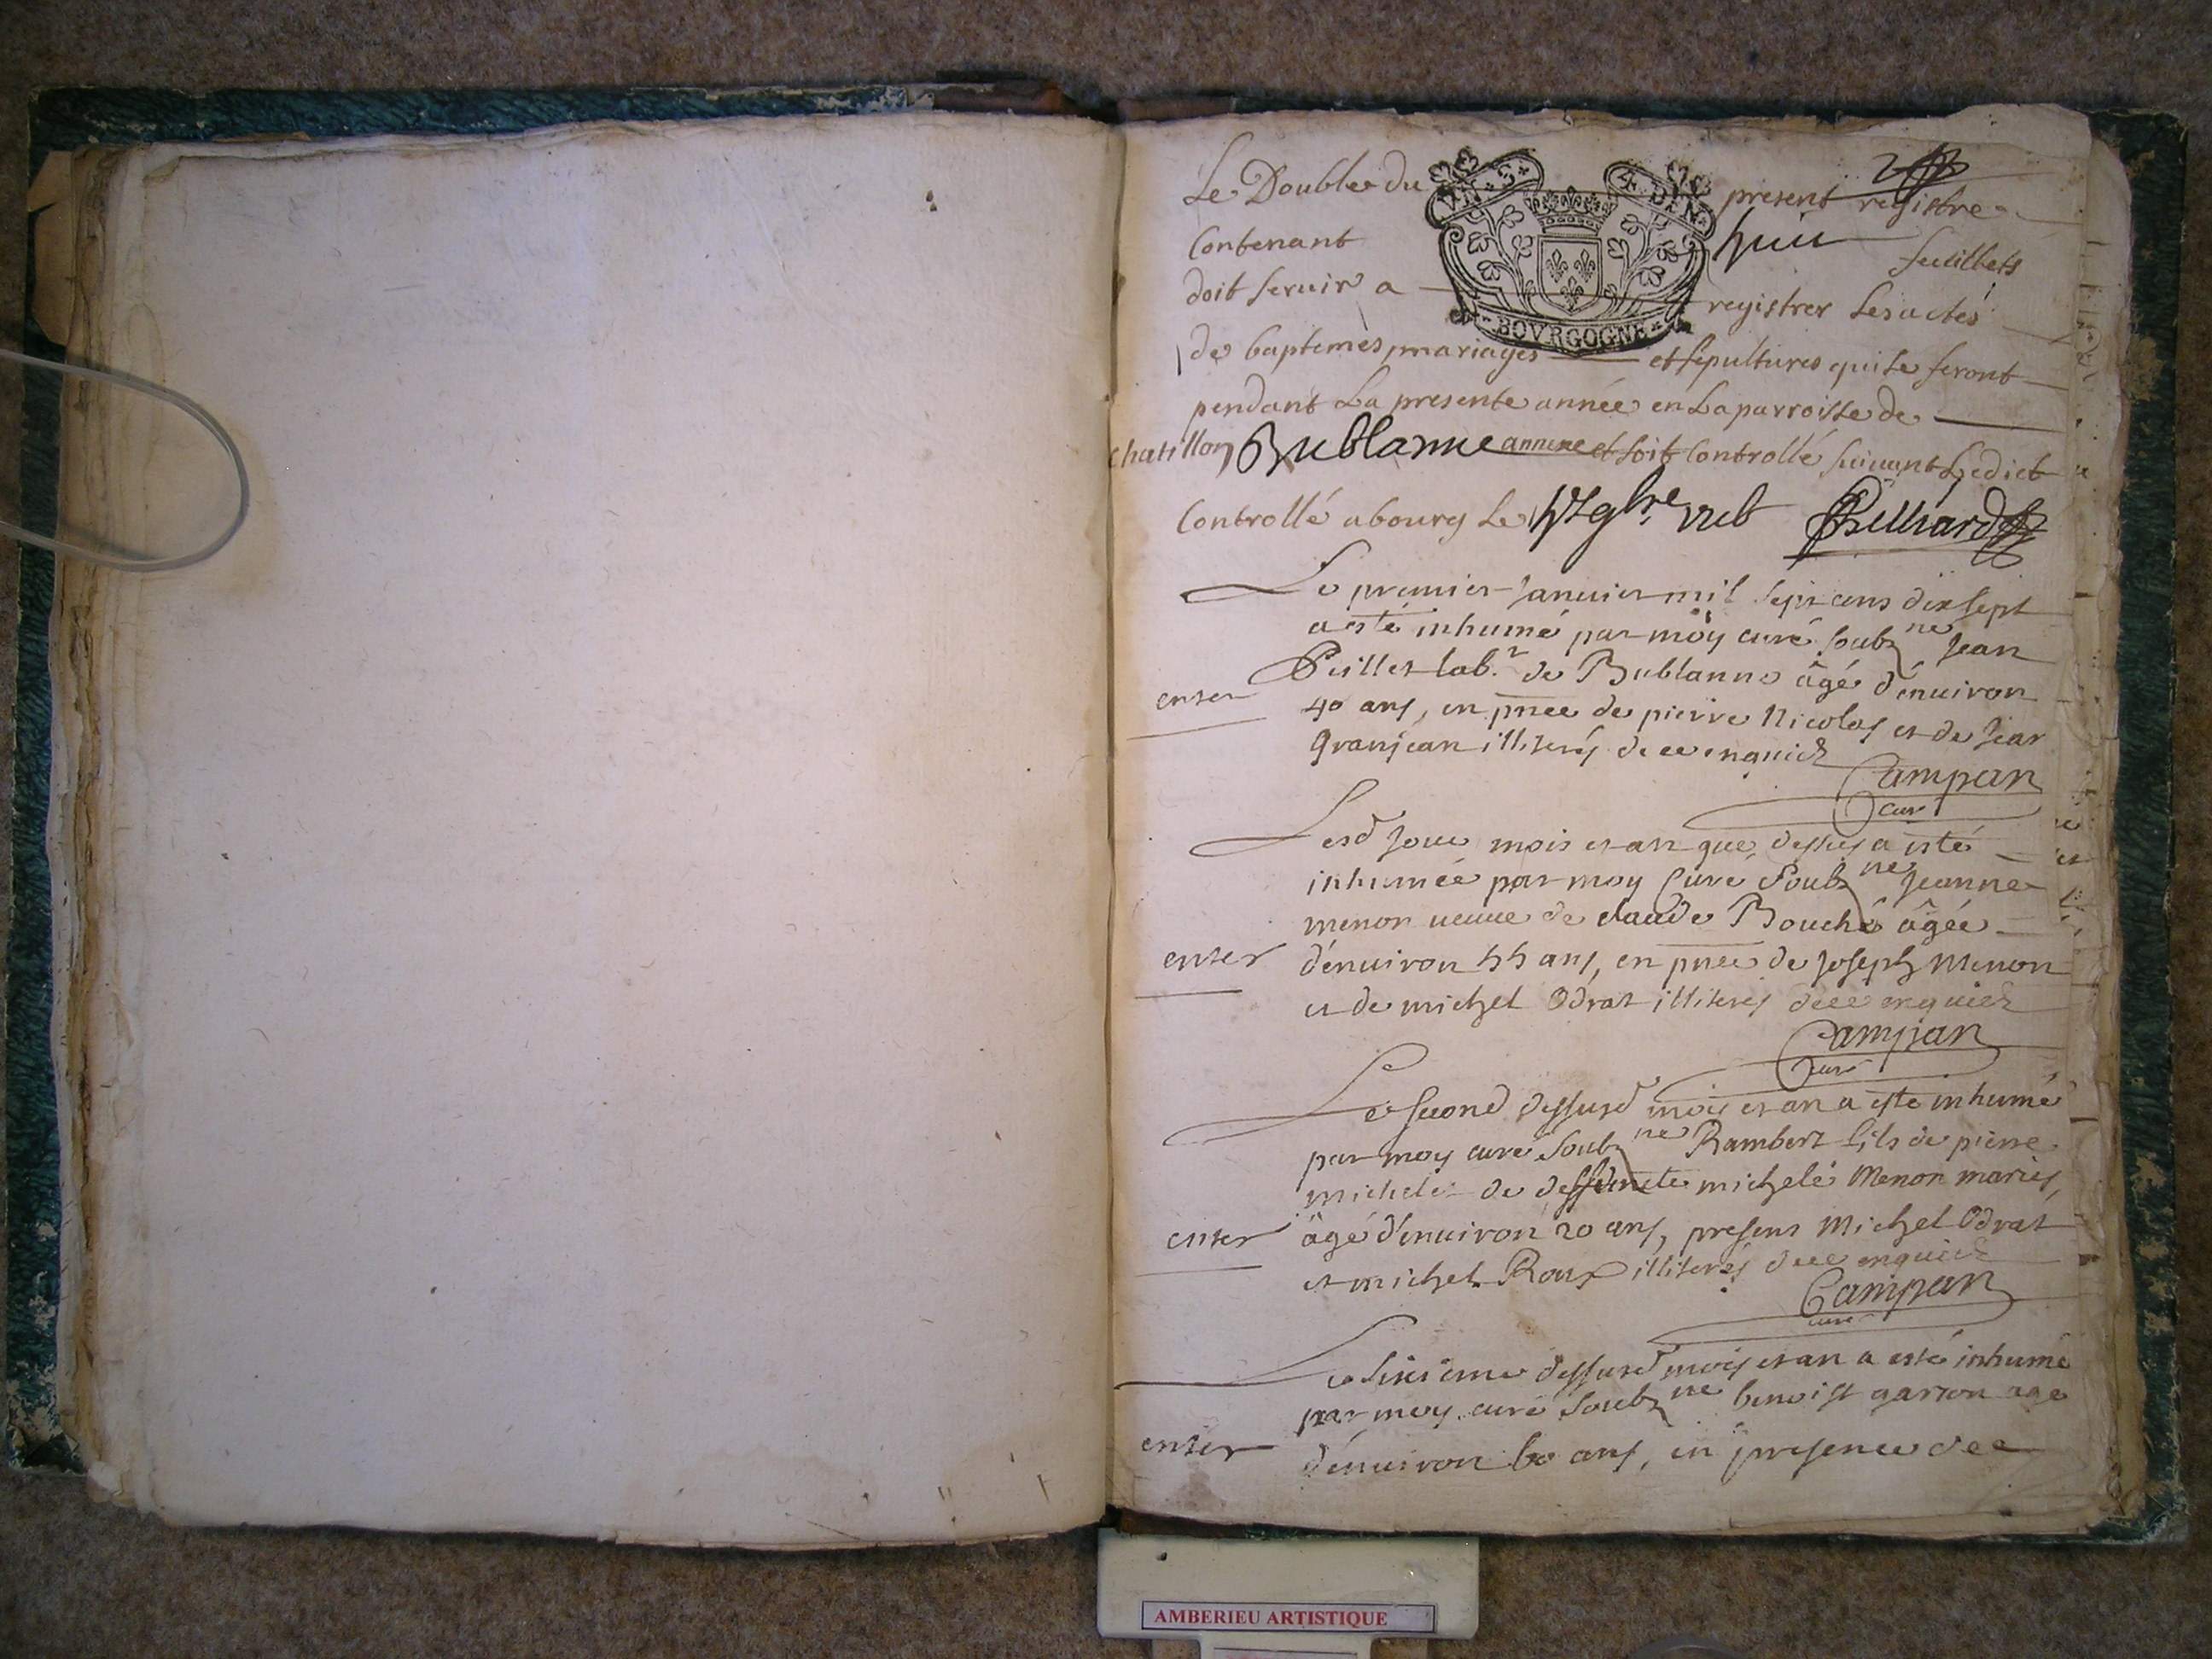 Le Double du present registre
VN·S· 4·DEN
Contenant huit feuillets
doit servir a registrer les actes
BOVRGOGNE
de baptemes, mariages et sepultures qui se feront
pendant La presente année en La parroisse de
chatillon Bublanne annexe et soit Controllé suivant Ledict
Controllé a bourg Le 9bre
Le premier Januier mil sept cens dix sept
a esté inhumé par moy curé soubz.ne Jean
lab.r de Bublanne âgé d'enuiron
40 ans, en pnce de pierre Nicolas et de Jean
enter
Granjean illiterés de ce enquis
Campan
curé
Lesd Jour mois et an que dessus a esté
inhumée par moy Curé Soubz.ne Jeanne
menon veuue de claude Bouché âgée
enter
d'enuiron 55 ans, en pnce de Joseph Menon
et de michel Odrat illiterés de ce enquis
Campan
curé
Le second dessusd mois et an a esté inhumé
par moy curé Soubz.ne Rambert fils de pierre
de deffuncte michele Menon mariés,
enter
âgé d'enuiron 20 ans, presens Michel Odrat
et michel Roux illiterés de ce enquis
Campan
curé
Le sixieme dessusd mois et an a esté inhumé
par moy curé Soubz.ne benoist garson age
enter
d'enuiron ans, en presence de
AMBERIEU ARTISTIQUE